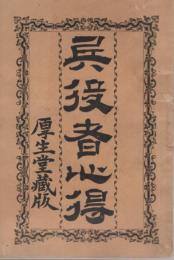 兵役者心得
厚生堂藏版